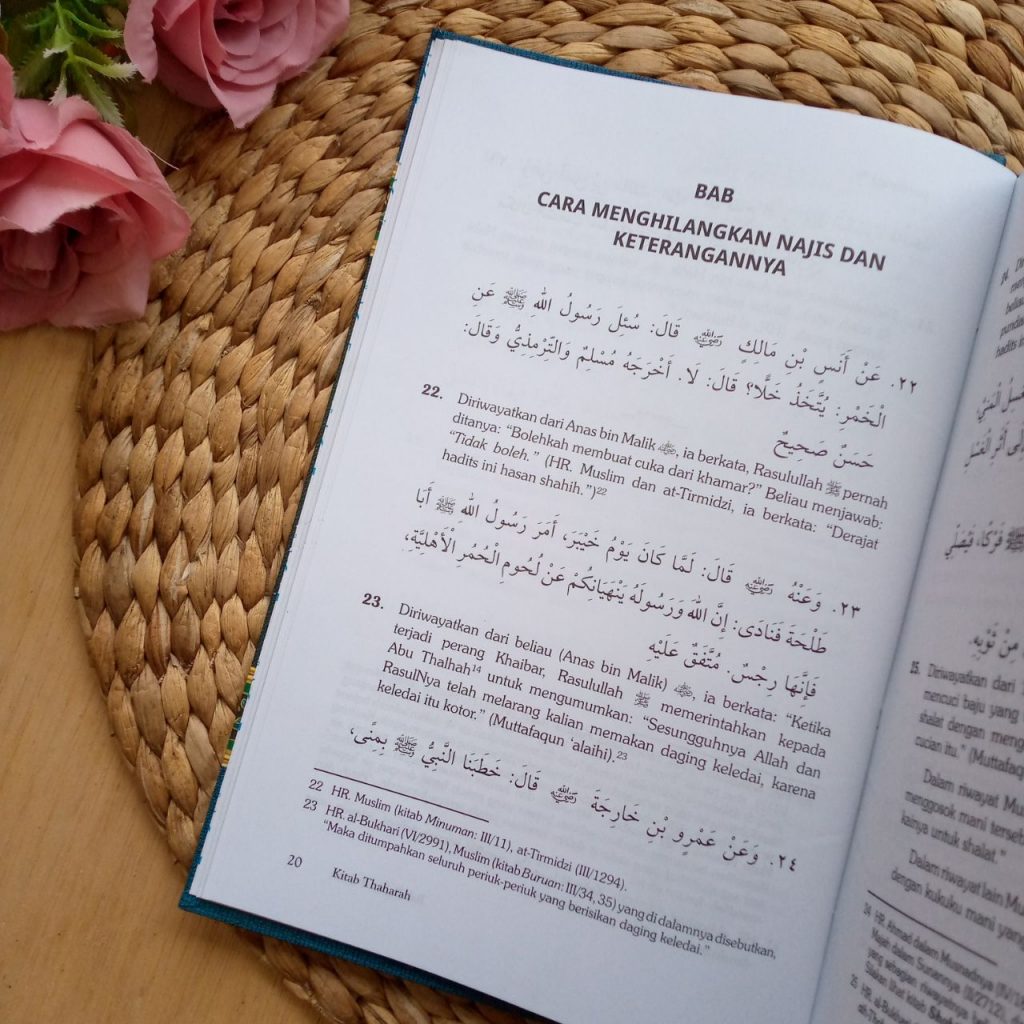 BAB
CARA MENGHILANGKAN NAJIS DAN
KETERANGANNYA
٢٢. عَنْ أَنَسِ بْنِ مَالِكٍ ﵁ قَالَ: سُئِلَ رَسُولُ اللهِ ﷺ عَنِ
الْخَمْرِ: يُتَّخَذُ خَلًّا؟ قَالَ: لَا. أَخْرَجَهُ مُسْلِمٌ وَالتِّرْمِذِيُّ وَقَالَ:
حَسَنٌ صَحِيحٌ
22. Diriwayatkan dari Anas bin Malik ﵁, ia berkata, Rasulullah ﷺ pernah
ditanya: “Bolehkah membuat cuka dari khamar?” Beliau menjawab:
“Tidak boleh.” (HR. Muslim dan at-Tirmidzi, ia berkata: “Derajat
hadits ini hasan shahih.”)²²
٢٣. وَعَنْهُ ﵁ قَالَ: لَمَّا كَانَ يَوْمُ خَيْبَرَ، أَمَرَ رَسُولُ اللهِ ﷺ أَبَا
طَلْحَةَ فَنَادَى: إِنَّ اللهَ وَرَسُولَهُ يَنْهَيَانِكُمْ عَنْ لُحُومِ الْحُمُرِ الْأَهْلِيَّةِ،
فَإِنَّهَا رِجْسٌ. مُتَّفَقٌ عَلَيْهِ
23. Diriwayatkan dari beliau (Anas bin Malik) ﵁, ia berkata: “Ketika
terjadi perang Khaibar, Rasulullah ﷺ memerintahkan kepada
Abu Thalhah¹⁴ untuk mengumumkan: “Sesungguhnya Allah dan
RasulNya telah melarang kalian memakan daging keledai, karena
keledai itu kotor.” (Muttafaqun ‘alaihi).²³
٢٤. وَعَنْ عَمْرِو بْنِ خَارِجَةَ ﵁ قَالَ: خَطَبَنَا النَّبِيُّ ﷺ بِمِنًى،
22 HR. Muslim (kitab Minuman: III/11), at-Tirmidzi (III/1294).
23 HR. al-Bukhari (VI/2991), Muslim (kitab Buruan: III/34, 35) yang di dalamnya disebutkan,
“Maka ditumpahkan seluruh periuk-periuk yang berisikan daging keledai.”
20 Kitab Thaharah
25. Diriwayatkan dari
mencuci baju yang
shalat dengan
cucian itu.” (Muttafaqun
Dalam riwayat
menggosok mani
kainya untuk shalat.”
Dalam riwayat lain
dengan kukuku mani yang
24 HR. Ahmad dalam Musnadnya
Majah dalam Sunannya (II/2712),
yang sebagian
25 HR. al-Bukhari